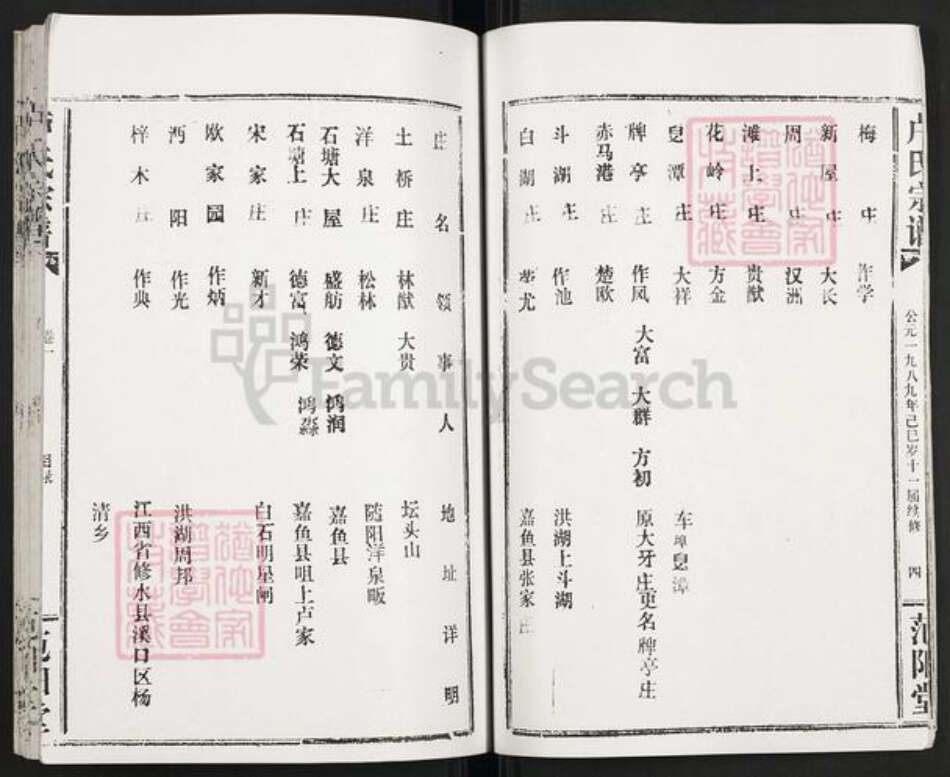 卢氏宗谱
公元一九八九年己巳岁十一届续修
四
范阳堂
梅庄 作学
新屋庄 大长
周庄 汉洲
滩上庄 贵猷
花岭庄 方金
皀潭庄 大祥 车埠皀潭
牌亭庄 作凤 大富 大群 方初 原大牙庄更名牌亭庄
赤马港庄 楚欧
斗湖庄 作池 洪湖上斗湖
白湖庄 楚尤 嘉鱼县张家庄
庄名 领事人 地址详明
土桥庄 林猷 大贵 坛头山
洋泉庄 松林 随阳洋泉畈
石塘大屋 盛舫 德文 鸿润 嘉鱼县
石塘上庄 德富 鸿荣 鸿淼 嘉鱼县咀上卢家
宋家庄 新才 白石明星闸
欧家园 作炳
沔阳 作光 洪湖周邦
梓木庄 作典 江西省修水县溪口区杨
清乡
卷一
目录
FamilySearch